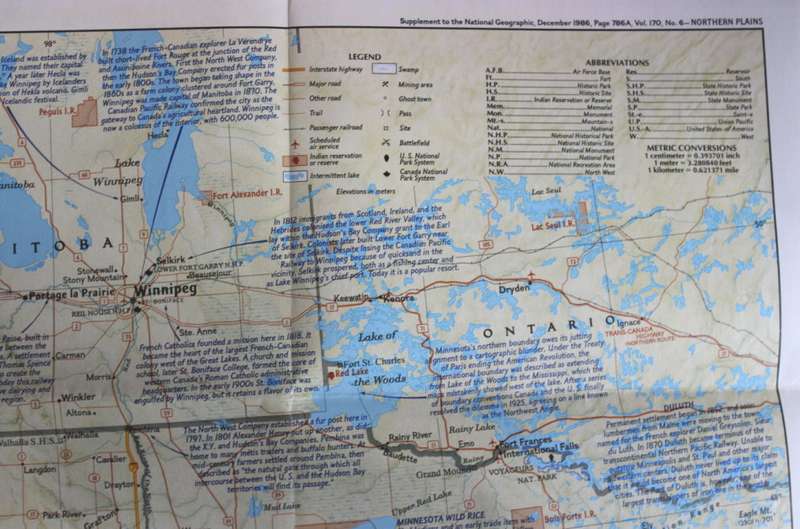 Supplement to the National Geographic, December 1986, Page 786A, Vol. 170, No. 6—NORTHERN PLAINS
98°
Iceland was established by
They named their capital
A year later Hecla was
ke Winnipeg by Icelanders
ion of Hekla volcano. Gimli
Icelandic festival.
In 1738 the French-Canadian explorer La Vérendrye
built short-lived Fort Rouge at the junction of the Red
and Assiniboine Rivers. First the North West Company,
then the Hudson's Bay Company erected fur posts in
the early 1800s. The town began taking shape in the
1860s as a farm colony clustered around Fort Garry.
Winnipeg was made capital of Manitoba in 1870. The
Canadian Pacific Railway confirmed the city as the
gateway to Canada's agricultural heartland. Winnipeg is
now a colossus of the interior, with 600,000 people.
LEGEND
Interstate highway
Major road
Other road
Trail
Passenger railroad
Scheduled
air service
Indian reservation
or reserve
Intermittent lake
Swamp
Mining area
Ghost town
Pass
Site
Battlefield
U.S. National
Park System
Canada National
Park System
Elevations in meters
ABBREVIATIONS
A.F.B. Air Force Base
Ft. Fort
H.P. Historic Park
H.S. Historic Site
I.R. Indian Reservation or Reserve
Mem. Memorial
Mon. Monument
Mt.-s Mountain-s
Nat. National
N.H.P. National Historical Park
N.H.S. National Historic Site
N.M. National Monument
N.P. National Park
N.R.A. National Recreation Area
N.W. North West
Res. Reservoir
S. South
S.H.P. State Historic Park
S.H.S. State Historic Site
S.M. State Monument
S.P. State Park
St.-e Saint-e
U.P. Union Pacific
U.S.-A. United States of America
W. West
METRIC CONVERSIONS
1 centimeter = 0.393701 inch
1 meter = 3.280840 feet
1 kilometer = 0.621371 mile
Peguis I.R.
Hecla
Lake
Winnipeg
Gimli
Fort Alexander I.R.
Winnipeg
anitoba
ITOBA
In 1812 immigrants from Scotland, Ireland, and the
Hebrides colonized the lower Red River Valley, which
lay within the Hudson's Bay Company grant to the Earl
of Selkirk. Colonists later built Lower Fort Garry near
the site of Selkirk. Despite losing the Canadian Pacific
Railway to Winnipeg because of quicksand in the
vicinity, Selkirk prospered, both as a fishing center and
as Lake Winnipeg's chief port. Today it is a popular resort.
Lac Seul
Lac Seul I.R.
50°
Selkirk
LOWER FORT GARRY N.H.P.
Stonewall
Stony Mountain
Beausejour
Portage la Prairie
Winnipeg
ST. BONIFACE
RIEL HOUSE
Ste. Anne
Keewatin
Kenora
Dryden
ONTARIO
Ignace
TRANS-CANADA
HIGHWAY
NORTHERN ROUTE
Lake of
the Woods
Fort St. Charles
Red Lake
French Catholics founded a mission here in 1818. It
became the heart of the largest French-Canadian
colony west of the Great Lakes. A church and mission
school, later St. Boniface College, formed the core of
western Canada's Roman Catholic administrative
headquarters. In the early 1900s St. Boniface was
engulfed by Winnipeg, but it retains a flavor of its own.
Minnesota's northern boundary owes its jutting
alignment to a cartographic blunder. Under the Treaty
of Paris ending the American Revolution, the
international boundary was described as extending
from Lake of the Woods to the Mississippi, which the
map mistakenly showed west of the lake. After a series
of boundary conventions Canada and the U.S. finally
resolved the dilemma in 1925, agreeing on a line known
as the Northwest Angle.
Carman
Morris
Winkler
Altona
Walhalla S.H.S.
Walhalla
Pembina
Cavalier
Langdon
Drayton
Park River
Grafton
The North West Company established a fur post here in
1797. In 1801 Alexander Henry put up another, as did
the X.Y. and Hudson's Bay Companies. Pembina was
home to many métis trappers and buffalo hunters. As
mid-century farmers settled around Pembina, then
described as "the natural gate through which all
intercourse between the U.S. and the Hudson Bay
territories will find its passage."
Rainy River
Baudette
Rainy Lake
Emo
Rainy
Fort Frances
International Falls
Grand Mound
VOYAGEURS
NAT. PARK
Upper Red Lake
Mud Lake
MINNESOTA WILD RICE
Bois Forte I.R.
DULUTH
Eagle Mt.